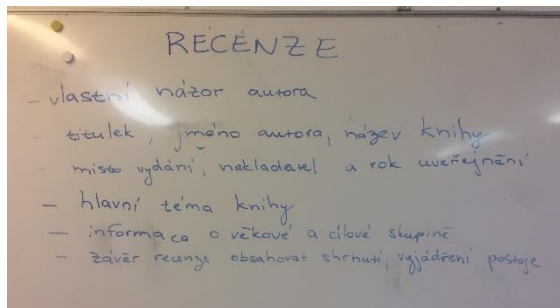 RECENZE
- vlastní názor autora
- titulek, jméno autora, název knihy
- místo vydání, nakladatel a rok uveřejnění
- hlavní téma knihy
- informaca o věkové a cílové skupině
- závěr recenze obsahovat shrnutí, vyjádření postoje